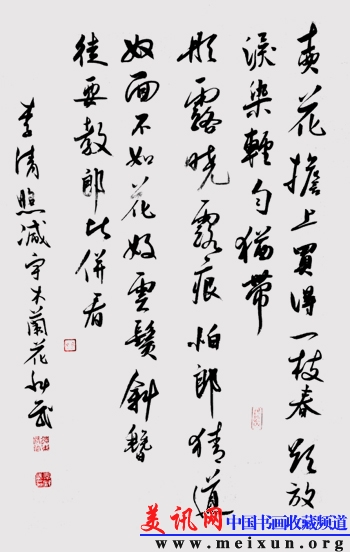 賣花擔上買得一枝春欲放
淚染輕勻猶帶
彤霞曉露痕怕郎猜道
奴面不如花好雲鬢斜簪
徒要教郎比併看
李清照減字木蘭花
美讯网 中国书画收藏频道
www.meixun.org